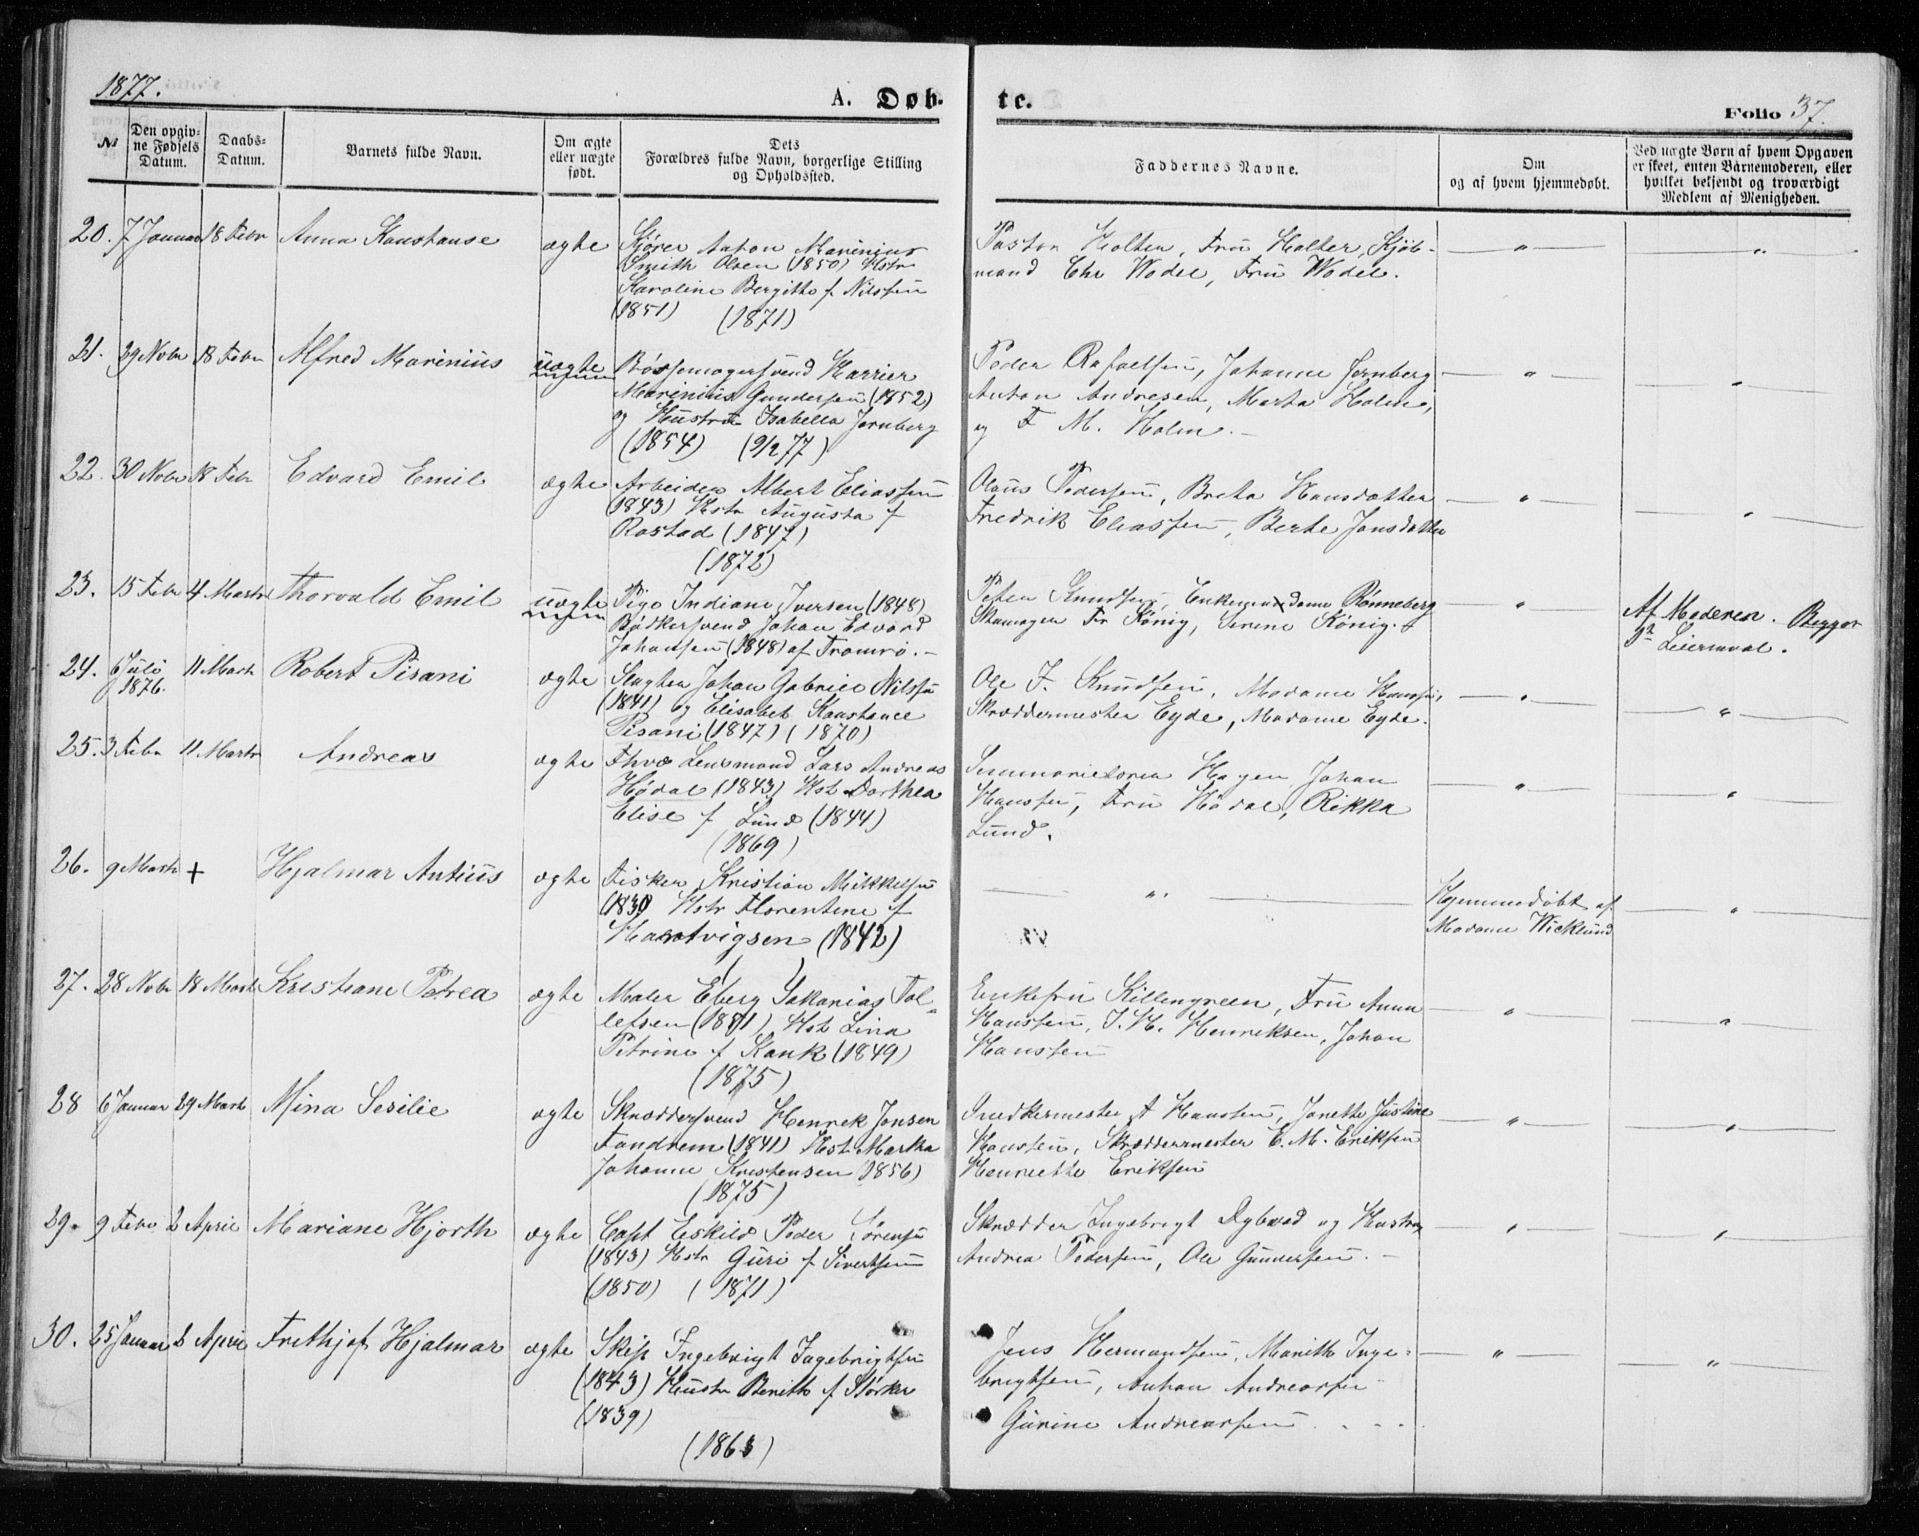 1877.
A. Døb- te.
Folio 37.
№
Den opgiv-
ne Fødsels
Datum.
Daabs-
Datum.
Barnets fulde Navn.
Om ægte
eller uægte
født.
Dets
Forældres fulde Navn, borgerlige Stilling
og Opholdssted.
Faddernes Navne.
Om
og af hvem hjemmedøbt.
Ved uægte Børn af hvem Opgaven
er skeet, enten Barnemoderen, eller
hvilket bekjendt og troværdigt
Medlem af Menigheden.
20. 7 Januar 18 Febr Anna Konstanse ægte
Anton Marinius
Smith Olsen (1850) Hstr
Karoline Bergitte f Nilssen
(1851) (1871)
Pastor Holter, Fru Holter, Kjøb-
mand Chr Wadel, Fru Wadel.
21. 29 Novbr 18 Febr Alfred Marinius uægte
Bøssemagersvend Harrier
Marinius Gundersen (1852)
og Hustru Isabella Jernberg
(1854) (9/2 77)
Peder Rafaelsen, Johanne Jernberg
Anton Andresen, Marta Holm,
og F M. Holm.
22. 30 Novbr 18 Febr Edvard Emil ægte
Arbeider Albert Eliassen
(1843) Hstr Augusta f
Rostad (1847)
(1872)
Olaus Pedersen, Breta Hansdatter
Fredrik Eliassen, Berte Jonsdatter
23. 15 Febr 4 Marts Thorvald Emil uægte
Pige Indiane Iversen (1848)
Bødkersvend Johan Edvard
Johansen (1848) af Tromsø.
Peter Knudsen, Enkemadame Rønneberg
Skomager Fr König, Serine König.
Af Moderen. Begges
1ste Leiermaal.
24. 6 Juli
1876. 11 Marts Robert Pisani ægte
Slagter Johan Gabriel Nilssen
(1841) og Elisabet Konstance
Pisani (1847) (1870)
Ole J. Knudsen, Madame Hanssen,
Skræddermester Eyde, Madame Eyde.
25. 3 Febr 11 Marts Andreas ægte
Lensmand Lars Andreas
Hødal (1843) Hst Dorthea
Elise f Lund (1844)
(1869)
Seminarielærer Hagen, Johan
Hanssen, Fru Hødal, Rikka
Lund.
26. 9 Marts + Hjalmar Antius ægte
Fisker Kristian Mikkelsen
(1839) Hstr Florentine f
Hartvigsen (1842)
( )
Hjemmedøbt af
Madame Wicklund
27. 28 Novbr 18 Marts Kristiane Petrea ægte
Maler Eberg Sakarias Tol-
lefsen (1851) Hst Lina
Petrine f Kank (1849)
(1875)
Enkefru Killengreen, Fru Anna
Hanssen, J. H. Henriksen, Johan
Hanssen
28 6 Januar 29 Marts Mina Sesilie ægte
Skræddersvend Henrik Jensen
Tondrem (1841) Hst Martha
Johanne Kristensen (1856)
(1875)
Snedkermester A Hanssen, Janette Justine
Hanssen, Skræddermester E. M. Eriksen
Henriette Eriksen
29. 9 Febr 2 April Mariane Hjorth ægte
Capt Eskild Peder Sørensen
(1843) Hstr Guri f Sivertsen
(1850) (1871)
Skrædder Ingebrigt Dybvad og Hustru
Andrea Pedersen, Ole Gundersen.
30. 25 Januar 2 April Frithjof Hjalmar ægte
Skip Ingebrigt Ingebrigtsen
(1843) Hustr Berith f Størker
(1839)
(1863)
Jens Hermandsen, Marith Inge-
brigtsen, Anton Andreassen
Gurine Andreassen